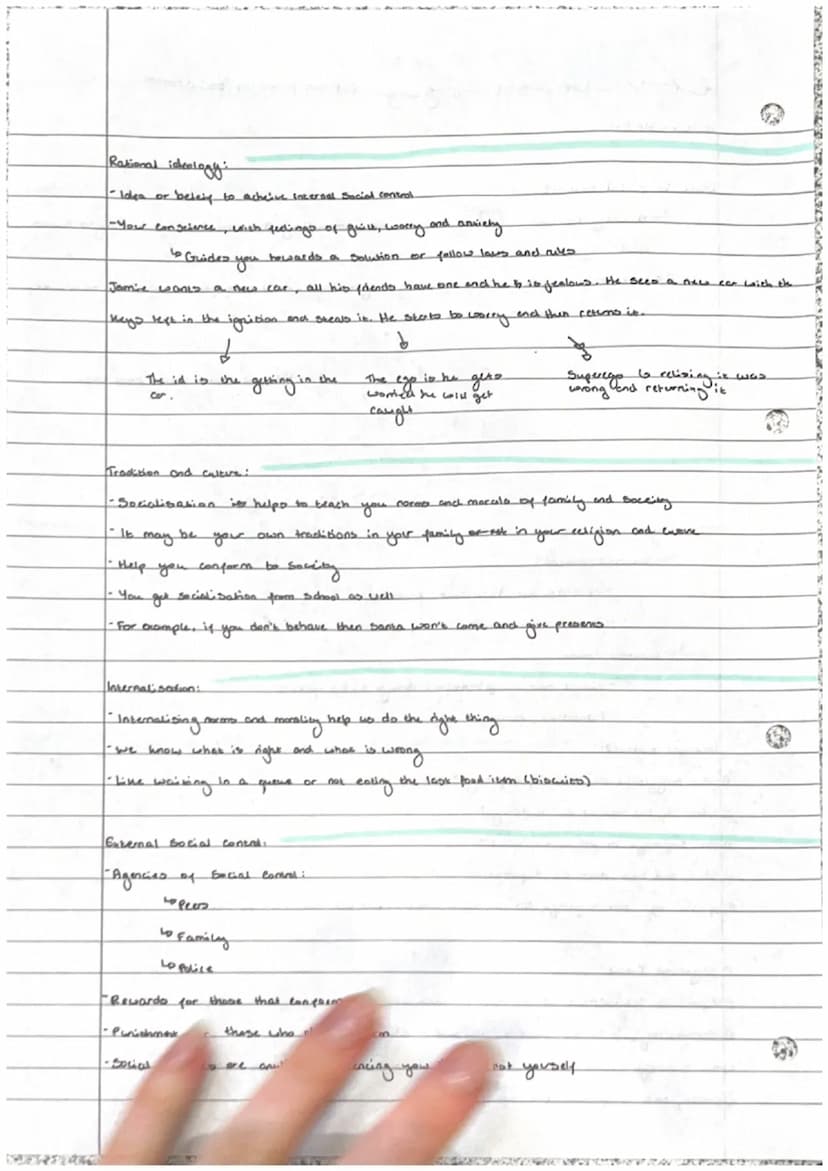 Rational ideology:
- Idea or beleif to acheive internal social control
- Your conscience, with feelings of guilt, worry and anxiety
↳ Guides you towards a solution or follow laws and rules
Jamie wants a new car, all his friends have one and he is jealous. He sees a new car with th
keys left in the ignition and steals it. He starts to worry and then returns it.
The id is the getting in the The ego is he gets Superego is relising it was
car. worried he will get wrong and returning it
caught
Tradition and culture:
- Socialisation helps to teach you norms and morals of family and soceity
- It may be your own traditions in your family in your religion and
- Help you conform to society
- You get socialisation from school as well
- For example, if you don't behave then santa won't come and give presents
Internalisation:
- Internalising norms and morality help us do the right thing
- We know what is right and what is wrong
- Like waiting in a queue or not eating the last food item (biscuits)
External social control:
- Agencies of social control:
↳ Peers
↳ Family
↳ Police
- Rewards for those that
- Punishment those who
- Social are you not yourself